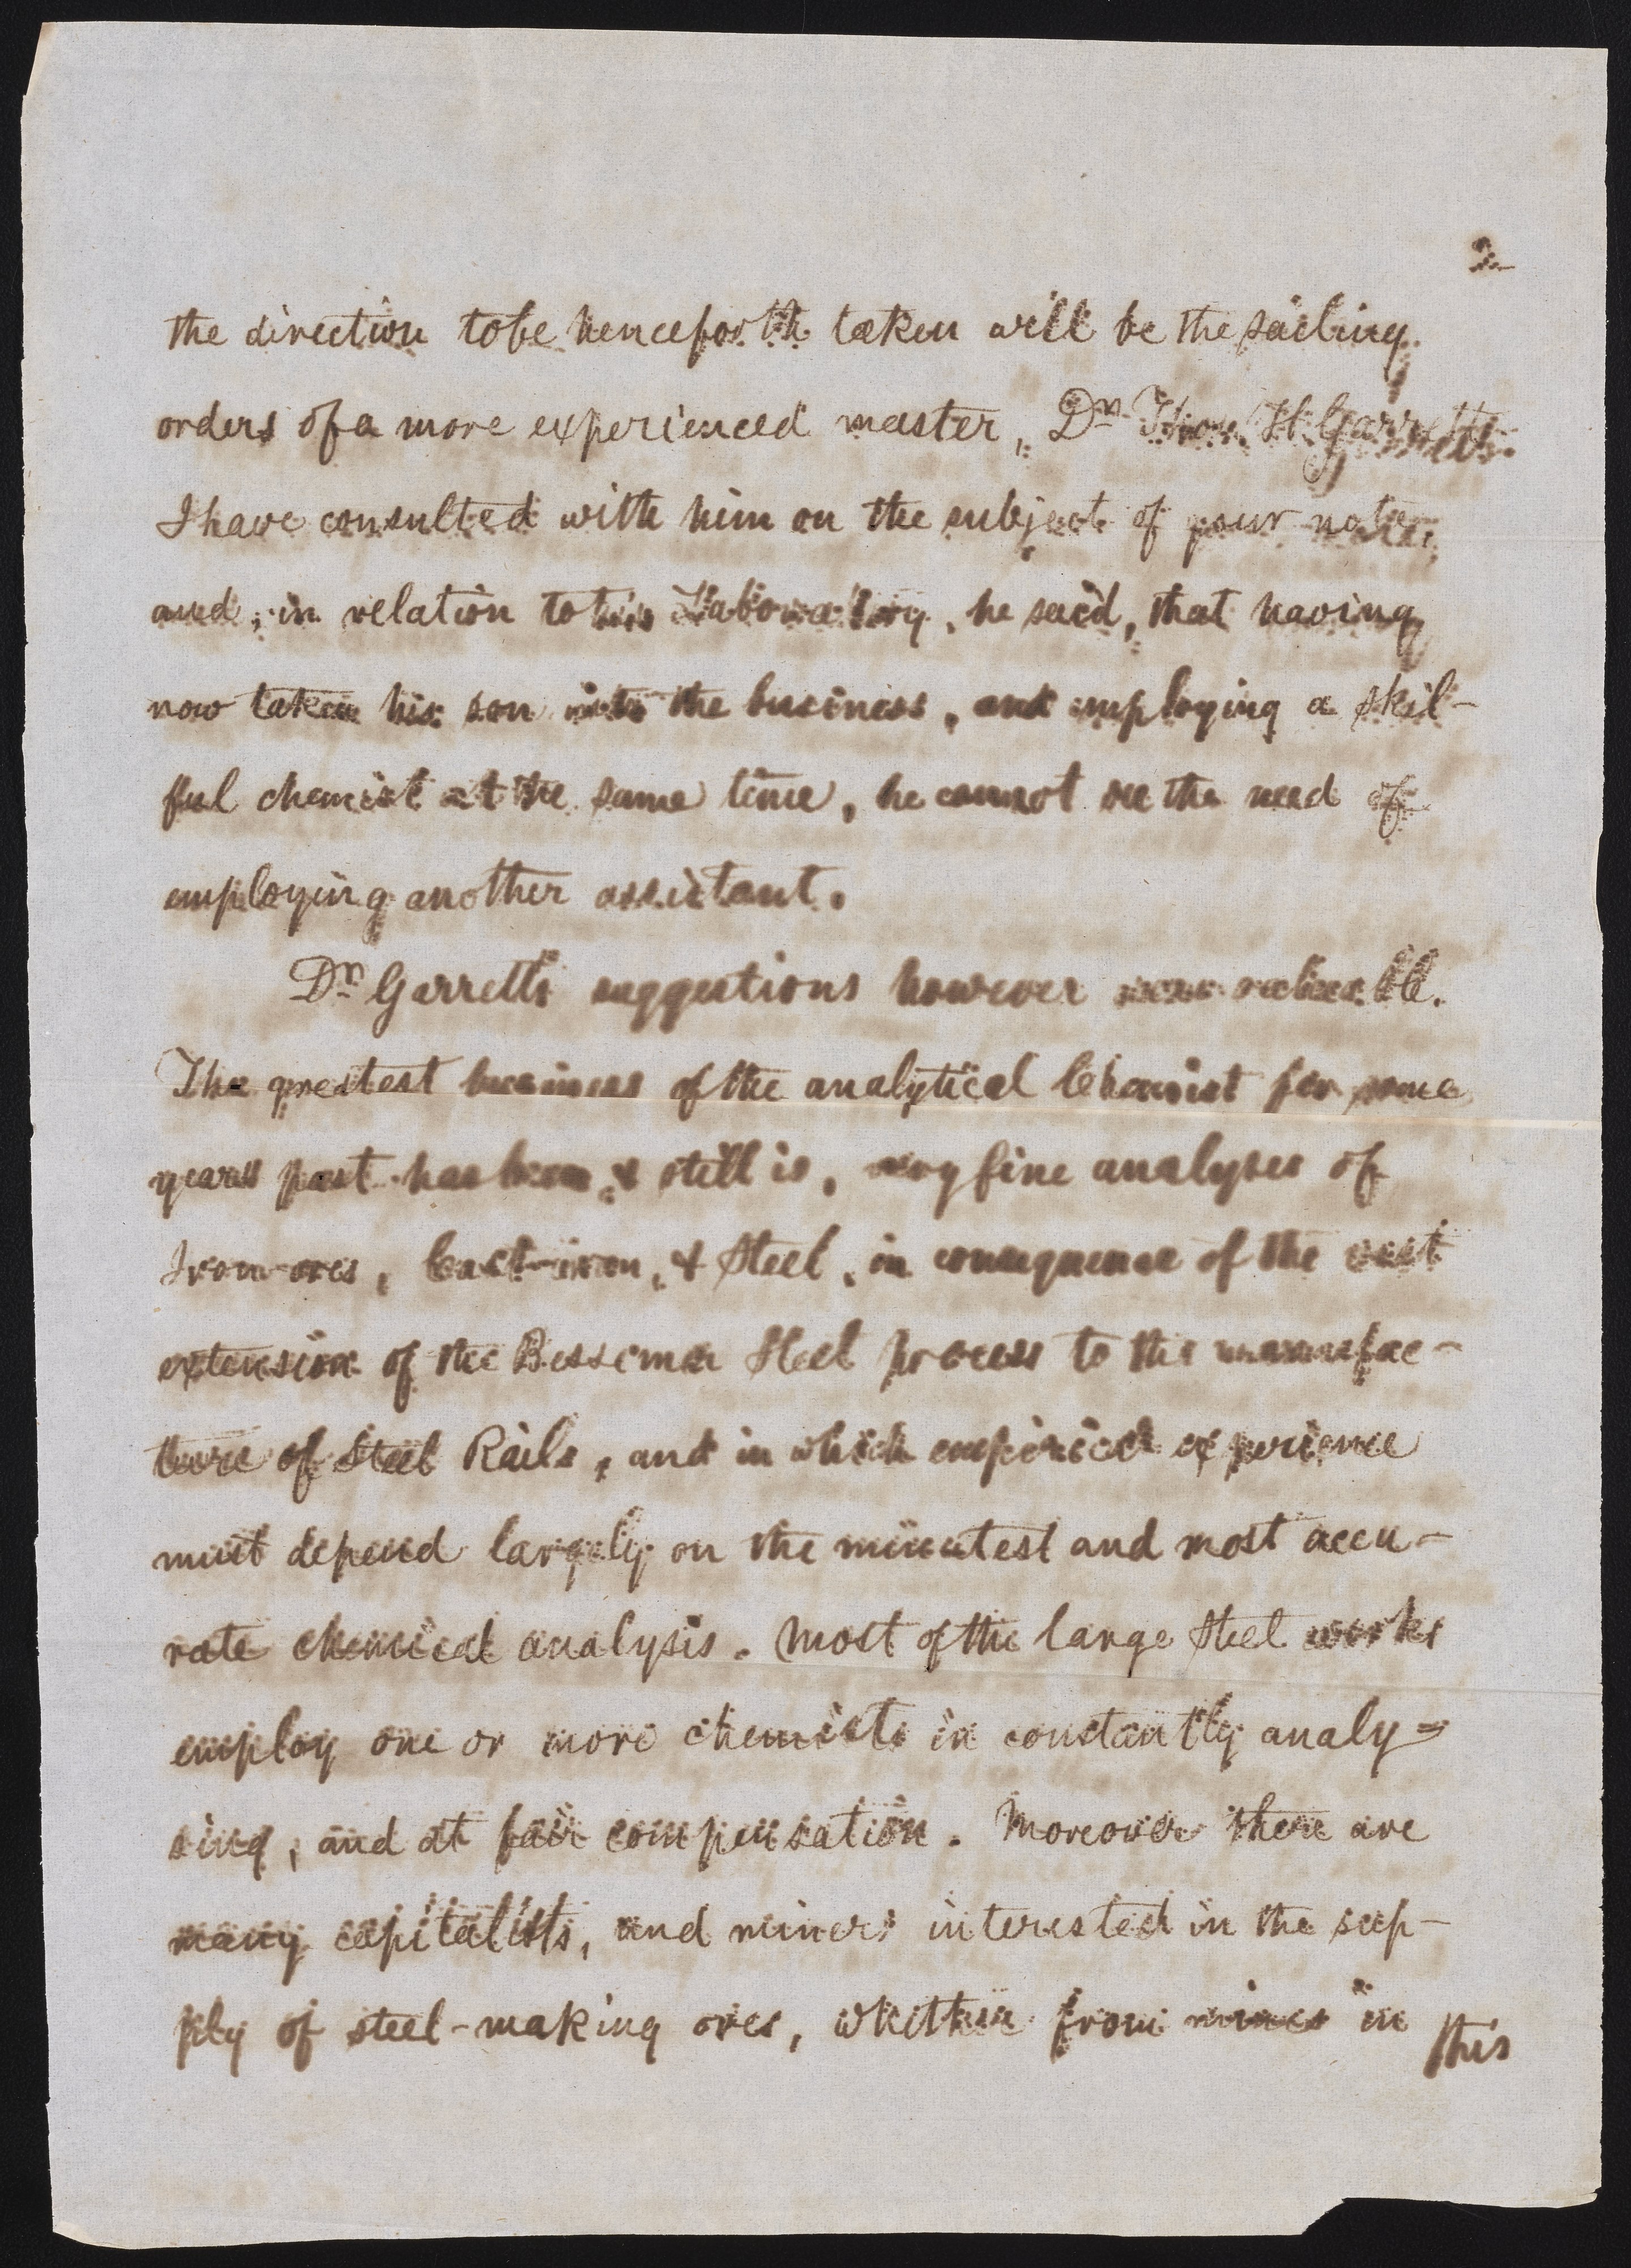 2
the direction to be henceforth taken will be the sailing
orders of a more experienced master, Dr. Thom. H. Garrett.
I have consulted with him on the subject of your note,
and, in relation to his Laboratory, he said, that having
now taken his son into the business, and employing a skil-
ful chemist at the same time, he cannot see the need of
employing another assistant.
Dr Garrett's suggestions however were valuable.
The greatest business of the analytical Chemist for some
years past has been, & still is, very fine analyses of
Iron-ores, Cast-iron, & Steel, in consequence of the vast
extension of the Bessemer Steel process to the manufac-
ture of Steel Rails, and in which empirical experience
must depend largely on the minutest and most accu-
rate chemical analysis. Most of the large Steel works
employ one or more chemists in constantly analy=
sing, and at fair compensation. Moreover there are
many capitalists, and miners interested in the sup-
ply of steel-making ores, whether from mines in
this